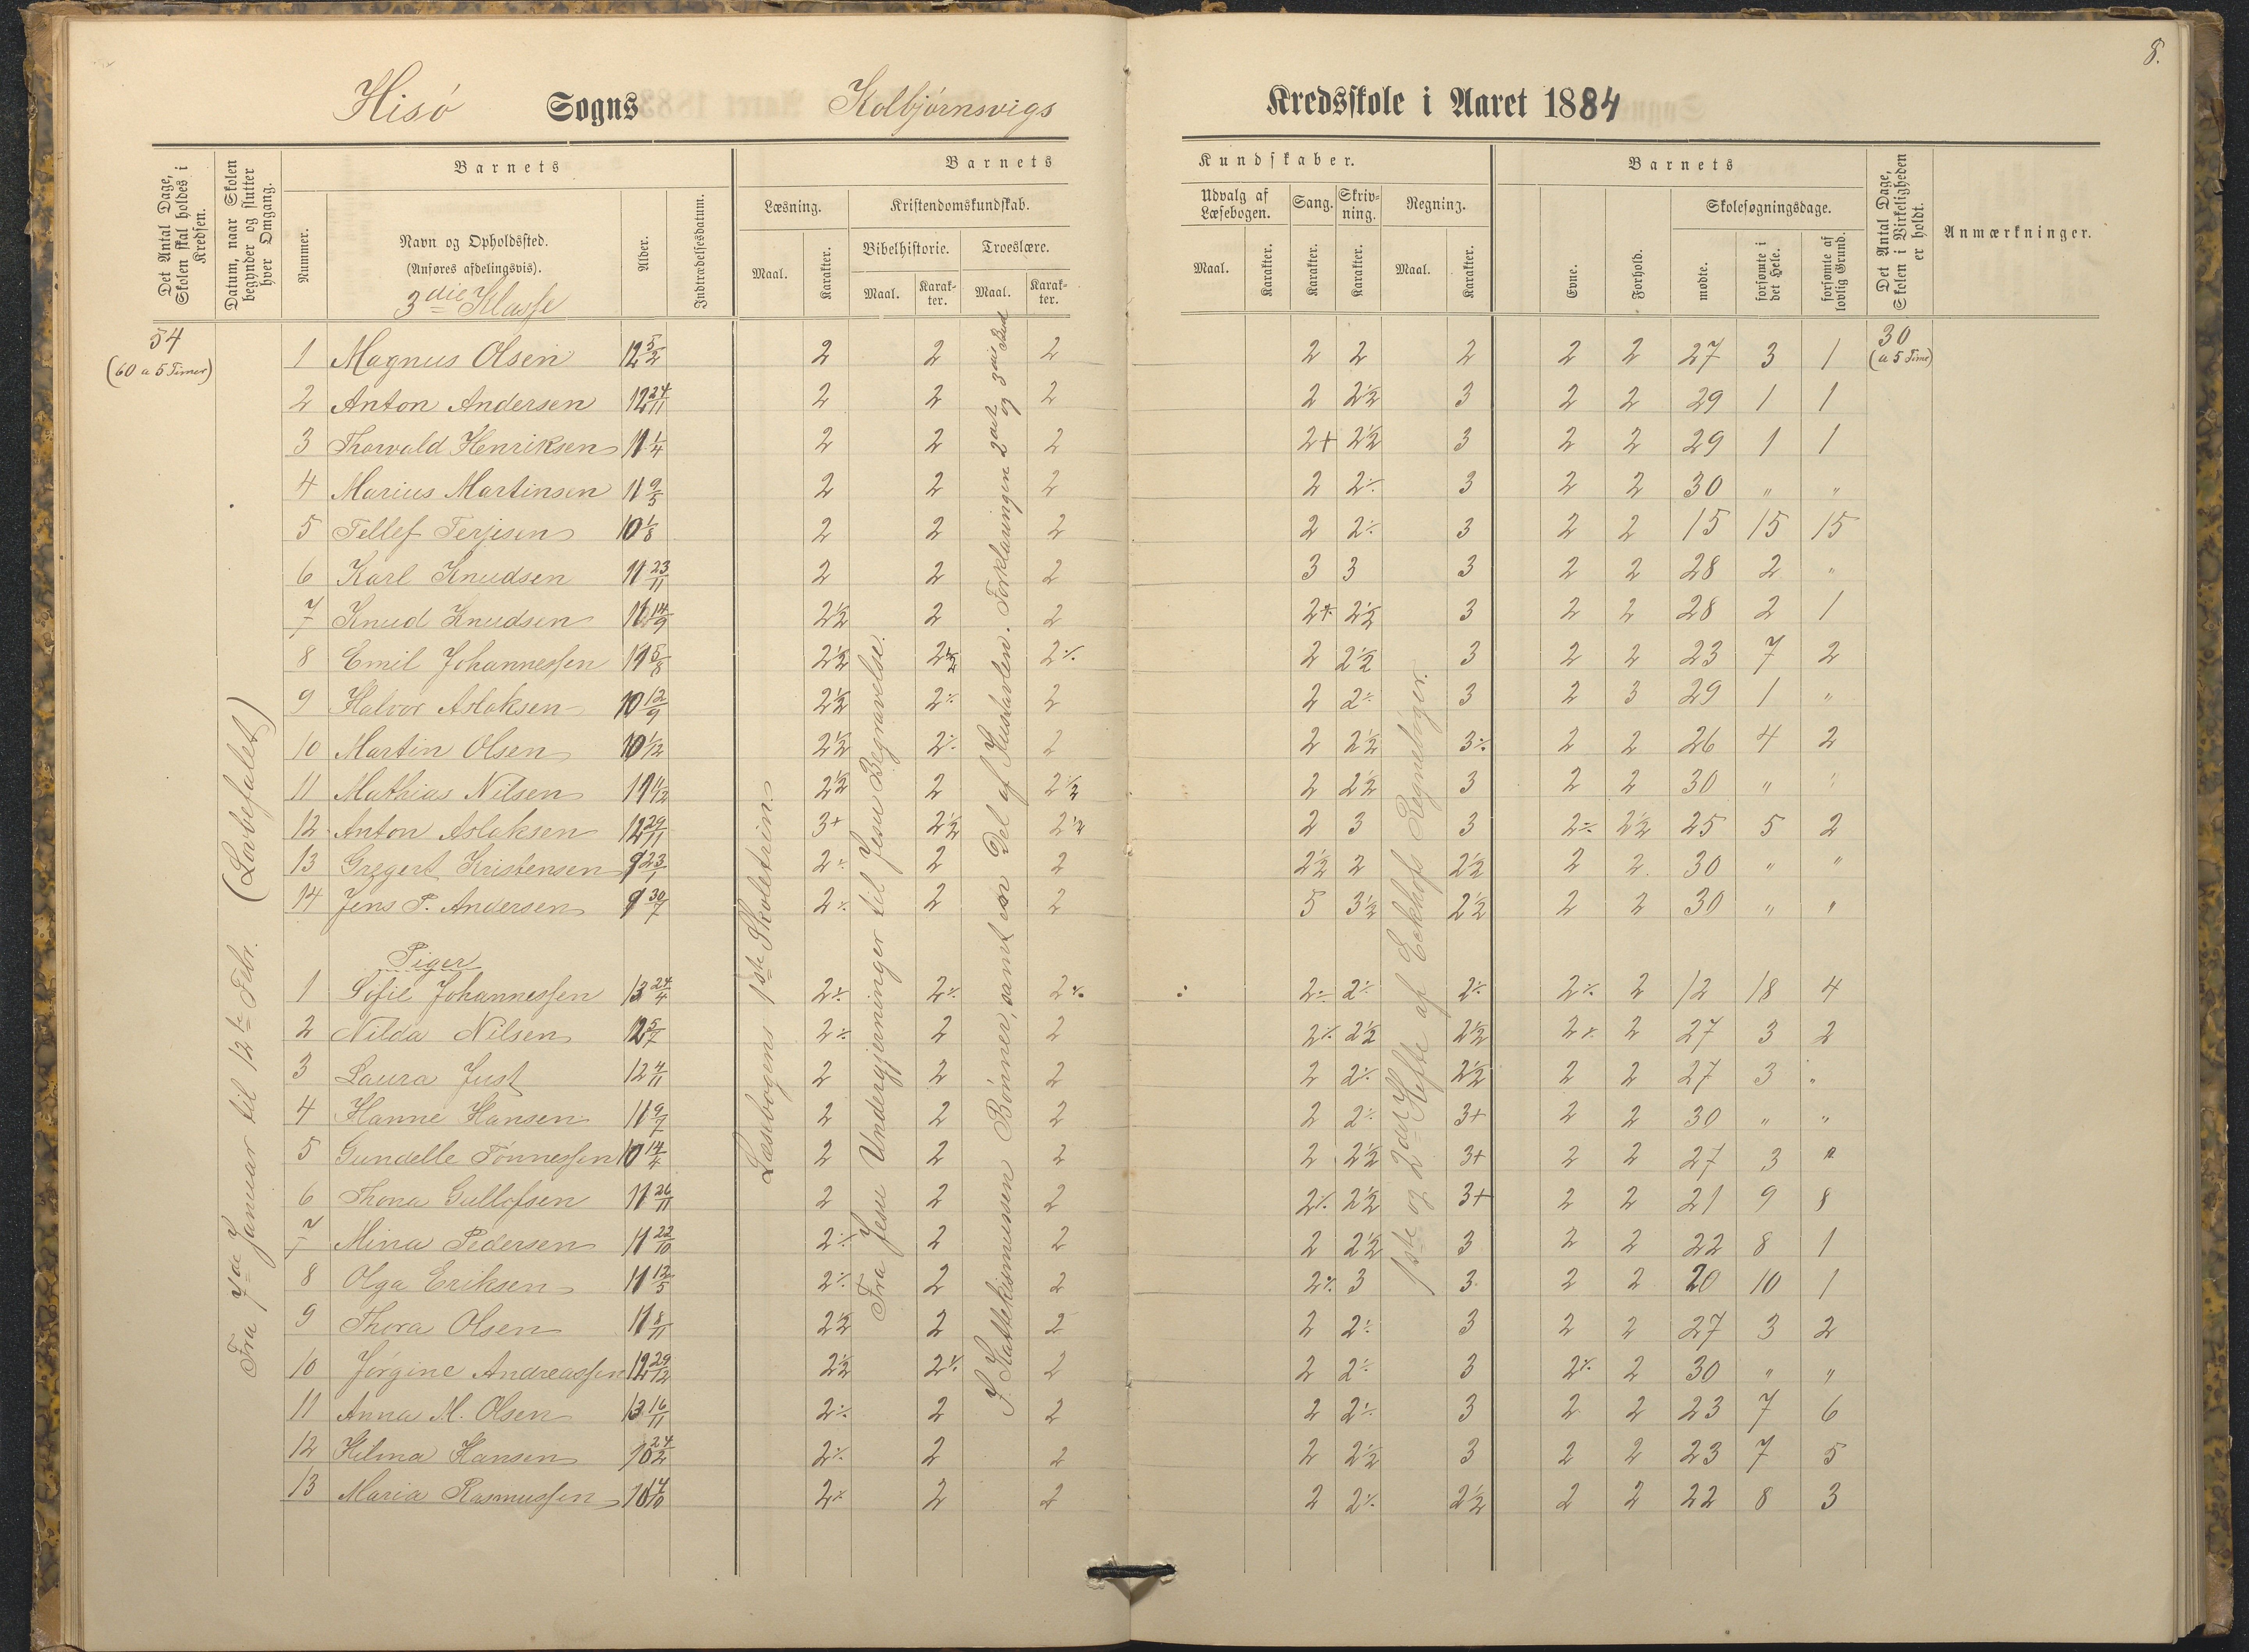 8.
Hisö Sogns Kolbjörnsvigs Kredsskole i Aaret 1884
Det Antal Dage, Skolen skal holdes i Kredsen.
Datum, naar Skolen begynder og slutter hver Omgang.
Barnets
Nummer.
Navn og Opholdssted.
(Anføres afdelingsvis).
3die Klasse
Alder.
Indtrædelsesdatum.
Barnets Kundskaber.
Læsning.
Maal.
Karakter.
Kristendomskundskab.
Bibelhistorie.
Maal.
Karakter.
Troeslære.
Maal.
Karakter.
Udvalg af Læsebogen.
Maal.
Karakter.
Sang.
Karakter.
Skrivning.
Karakter.
Regning.
Maal.
Karakter.
Barnets
Evne.
Forhold.
Skolesøgningsdage.
mødte.
forsømte i det Hele.
forsømte af lovlig Grund.
Det Antal Dage, Skolen i Virkeligheden er holdt.
Anmærkninger.
54
(60 a 5 Timer)
30
(a 5 Time)
Fra 7de Januar til 12te Febr. (Lovbefalet)
Læsebogens 1ste Skoletrin
Fra Jesu Undergjerninger til Jesu Begravelse.
S. Kattekismussen Bönner, samt en Del af Hustavlen. Forklaringen 2det og 3die Bud
1ste og 2det Hefte af Eckhofs Regnebøger.
1 Magnus Olsen 12 5/2 2 2 2 2 2 2 2 2 27 3 1
2 Anton Andersen 12 24/11 2 2 2 2 2½ 3 2 2 29 1 1
3 Thorvald Henriksen 11 1/4 2 2 2 2+ 2½ 3 2 2 29 1 1
4 Marius Martinsen 11 9/5 2 2 2 2 2÷ 3 2 2 30 " "
5 Tellef Terjesen 10 1/8 2 2 2 2 2÷ 3 2 2 15 15 15
6 Karl Knudsen 11 23/11 2 2 2 3 3 3 2 2 28 2 "
7 Knud Knudsen 14/9 2½ 2 2 2+ 2½ 3 2 2 28 2 1
8 Emil Johannessen 11 5/8 2½ 2½ 2÷ 2 2½ 3 2 2 23 7 2
9 Halvor Aslaksen 10 12/9 2½ 2÷ 2 2 2÷ 3 2 3 29 1 "
10 Martin Olsen 10 1/12 2½ 2÷ 2 2 2½ 3÷ 2 2 26 4 2
11 Mathias Nilsen 11 2½ 2 2½ 2 2½ 3 2 2 30 " "
12 Anton Aslaksen 12 29/11 3+ 2½ 2½ 2 3 3 2÷ 2½ 25 5 2
13 Gregert Kristensen 9 23/1 2÷ 2 2 2½ 2 2½ 2 2 30 " "
14 Jens P. Andersen 9 30/7 2÷ 2 2 5 3½ 2½ 2 2 30 " "
Piger
1 Sofie Johannessen 13 24/4 2÷ 2÷ 2÷ 2÷ 2÷ 2÷ 2÷ 2 12 18 4
2 Nilda Nilsen 12 5/7 2÷ 2 2 2÷ 2½ 2½ 2÷ 2 27 3 2
3 Laura Just 12 4/11 2 2 2 2 2÷ 2½ 2 2 27 3 "
4 Hanne Hansen 11 9/7 2 2 2 2 2÷ 3+ 2 2 30 " "
5 Gundelle Tönnessen 10 14/4 2 2 2 2 2½ 3+ 2 2 27 3 "
6 Thona Gullofsen 11 26/11 2 2 2 2÷ 2½ 3+ 2 2 21 9 8
7 Mina Pedersen 11 22/10 2÷ 2 2 2 2½ 3 2 2 22 8 1
8 Olga Eriksen 11 12/5 2÷ 2 2 2÷ 3 3 2 2 20 10 1
9 Thora Olsen 11 8/11 2½ 2 2 2 2÷ 3 2 2 27 3 2
10 Jörgine Andreassen 12 29/12 2½ 2÷ 2 2 2÷ 3 2÷ 2 30 " "
11 Anna M. Olsen 13 16/11 2÷ 2 2 2 2÷ 3 2 2 23 7 6
12 Hilma Hansen 10 24/2 2÷ 2 2 2 2½ 3 2 2 23 7 5
13 Maria Rasmussen 10 2÷ 2 2 2 2÷ 2½ 2 2 22 8 3